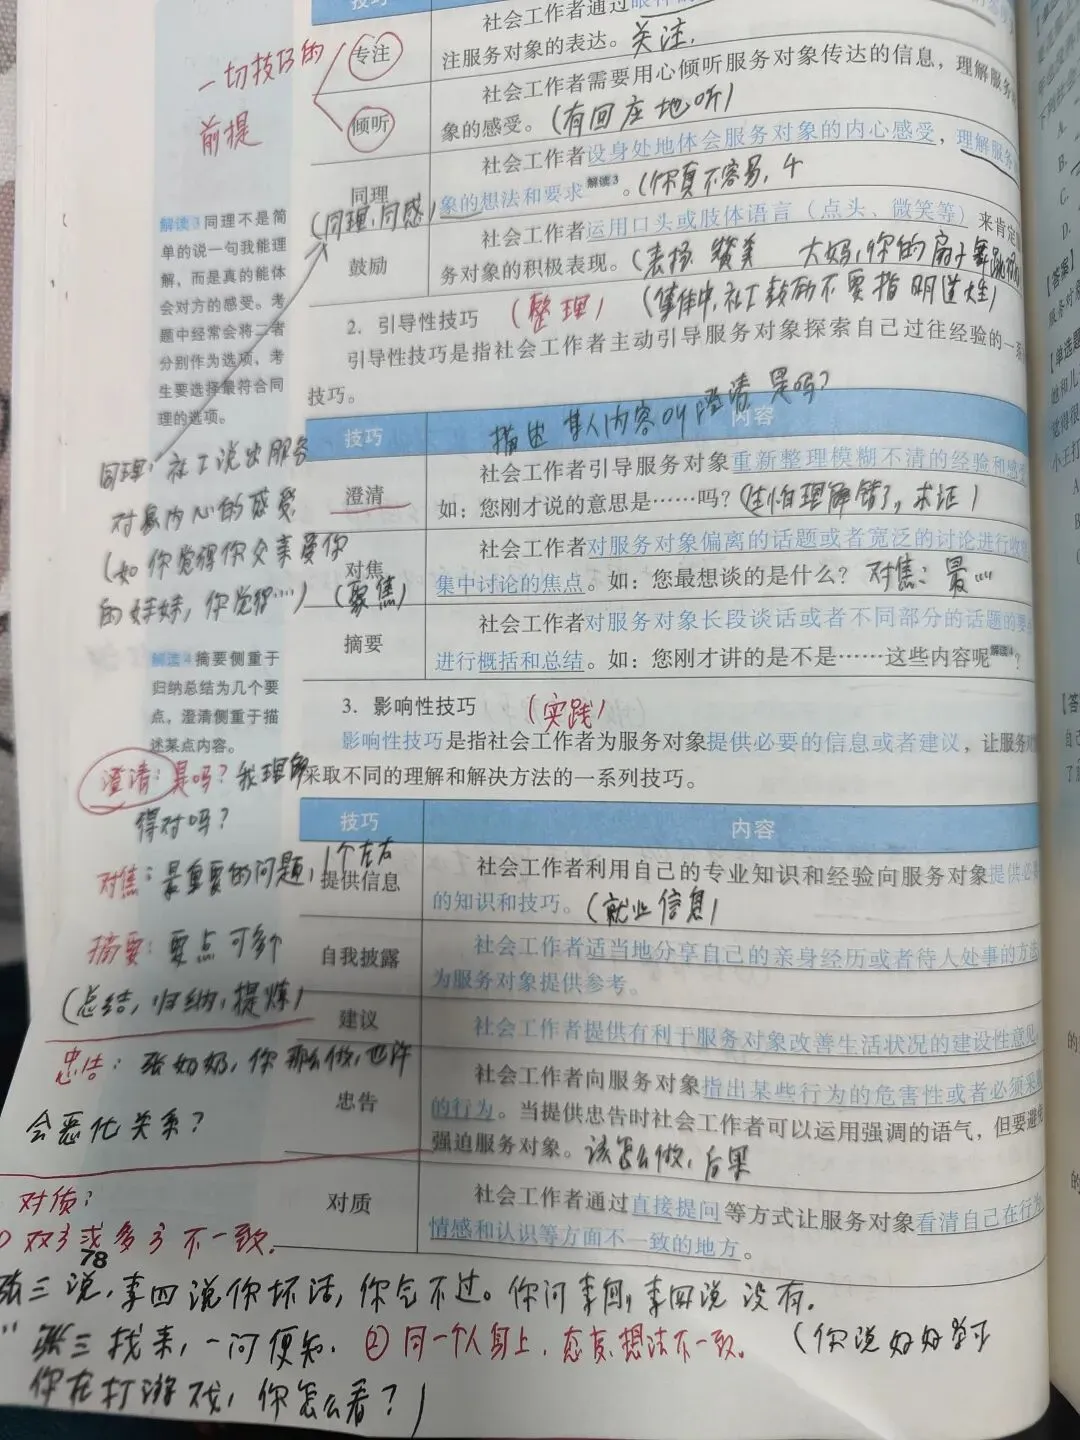 技巧
社会工作者通过眼神
专注
注服务对象的表达。关注.
一切技巧的
前提
社会工作者需要用心倾听服务对象传达的信息，理解服务
倾听
象的感受。(有回应地听)
社会工作者设身处地体会服务对象的内心感受，理解服务
同理
(同理,同感)
象的想法和要求解读3。(你真不容易,
社会工作者运用口头或肢体语言（点头、微笑等）来肯定
鼓励
务对象的积极表现。(表扬 赞美 大妈,你的扇子舞跳
解读3同理不是简
单的说一句我能理
解，而是真的能体
会对方的感受。考
题中经常会将二者
分别作为选项，考
生要选择最符合同
理的选项。
2. 引导性技巧 (整理) 社工鼓励不要指明
引导性技巧是指社会工作者主动引导服务对象探索自己过往经验的一系
技巧。
描述某人内容叫澄清 是吗?
技巧 内容
社会工作者引导服务对象重新整理模糊不清的经验和感
澄清
如：您刚才说的意思是……吗？(生怕理解错了,求证)
社会工作者对服务对象偏离的话题或者宽泛的讨论进行收
对焦
(聚焦)
集中讨论的焦点。如：您最想谈的是什么？对焦:最……
社会工作者对服务对象长段谈话或者不同部分的话题的要
摘要
进行概括和总结。如：您刚才讲的是不是……这些内容呢解读4？
同理:社工说出服务
对象内心的感受
(如你觉得你父亲爱你
的妹妹,你觉得…)
解读4摘要侧重于
归纳总结为几个要
点，澄清侧重于描
述某点内容。
3. 影响性技巧 (实践)
影响性技巧是指社会工作者为服务对象提供必要的信息或者建议，让服务对
采取不同的理解和解决方法的一系列技巧。
澄清:是吗?我理解
得对吗?
对焦:最重要的问题,1个左右
摘要:要点可多个
(总结,归纳,提炼)
技巧 内容
社会工作者利用自己的专业知识和经验向服务对象提供必
提供信息
的知识和技巧。(就业信息)
社会工作者适当地分享自己的亲身经历或者待人处事的方法
自我披露
为服务对象提供参考。
建议
社会工作者提供有利于服务对象改善生活状况的建设性意见
社会工作者向服务对象指出某些行为的危害性或者必须采
忠告
的行为。当提供忠告时社会工作者可以运用强调的语气，但要避
强迫服务对象。该怎么做,后果
社会工作者通过直接提问等方式让服务对象看清自己在行为
对质
情感和认识等方面不一致的地方。
忠告:张奶奶,你那么做,也许
会恶化关系?
对质:
双方或多方不一致.
78
张三说,李四说你坏话,你气不过。你问李四,李四说没有.
张三找来,一问便知. ②同一个人身上,态度,想法不一致。(你说好好学习
你在打游戏,你怎么看?)
A.
B.
C.
D.
【答案】
服务对
【单选题
他和儿
觉得很
小王打
A
【答
自己
的
的